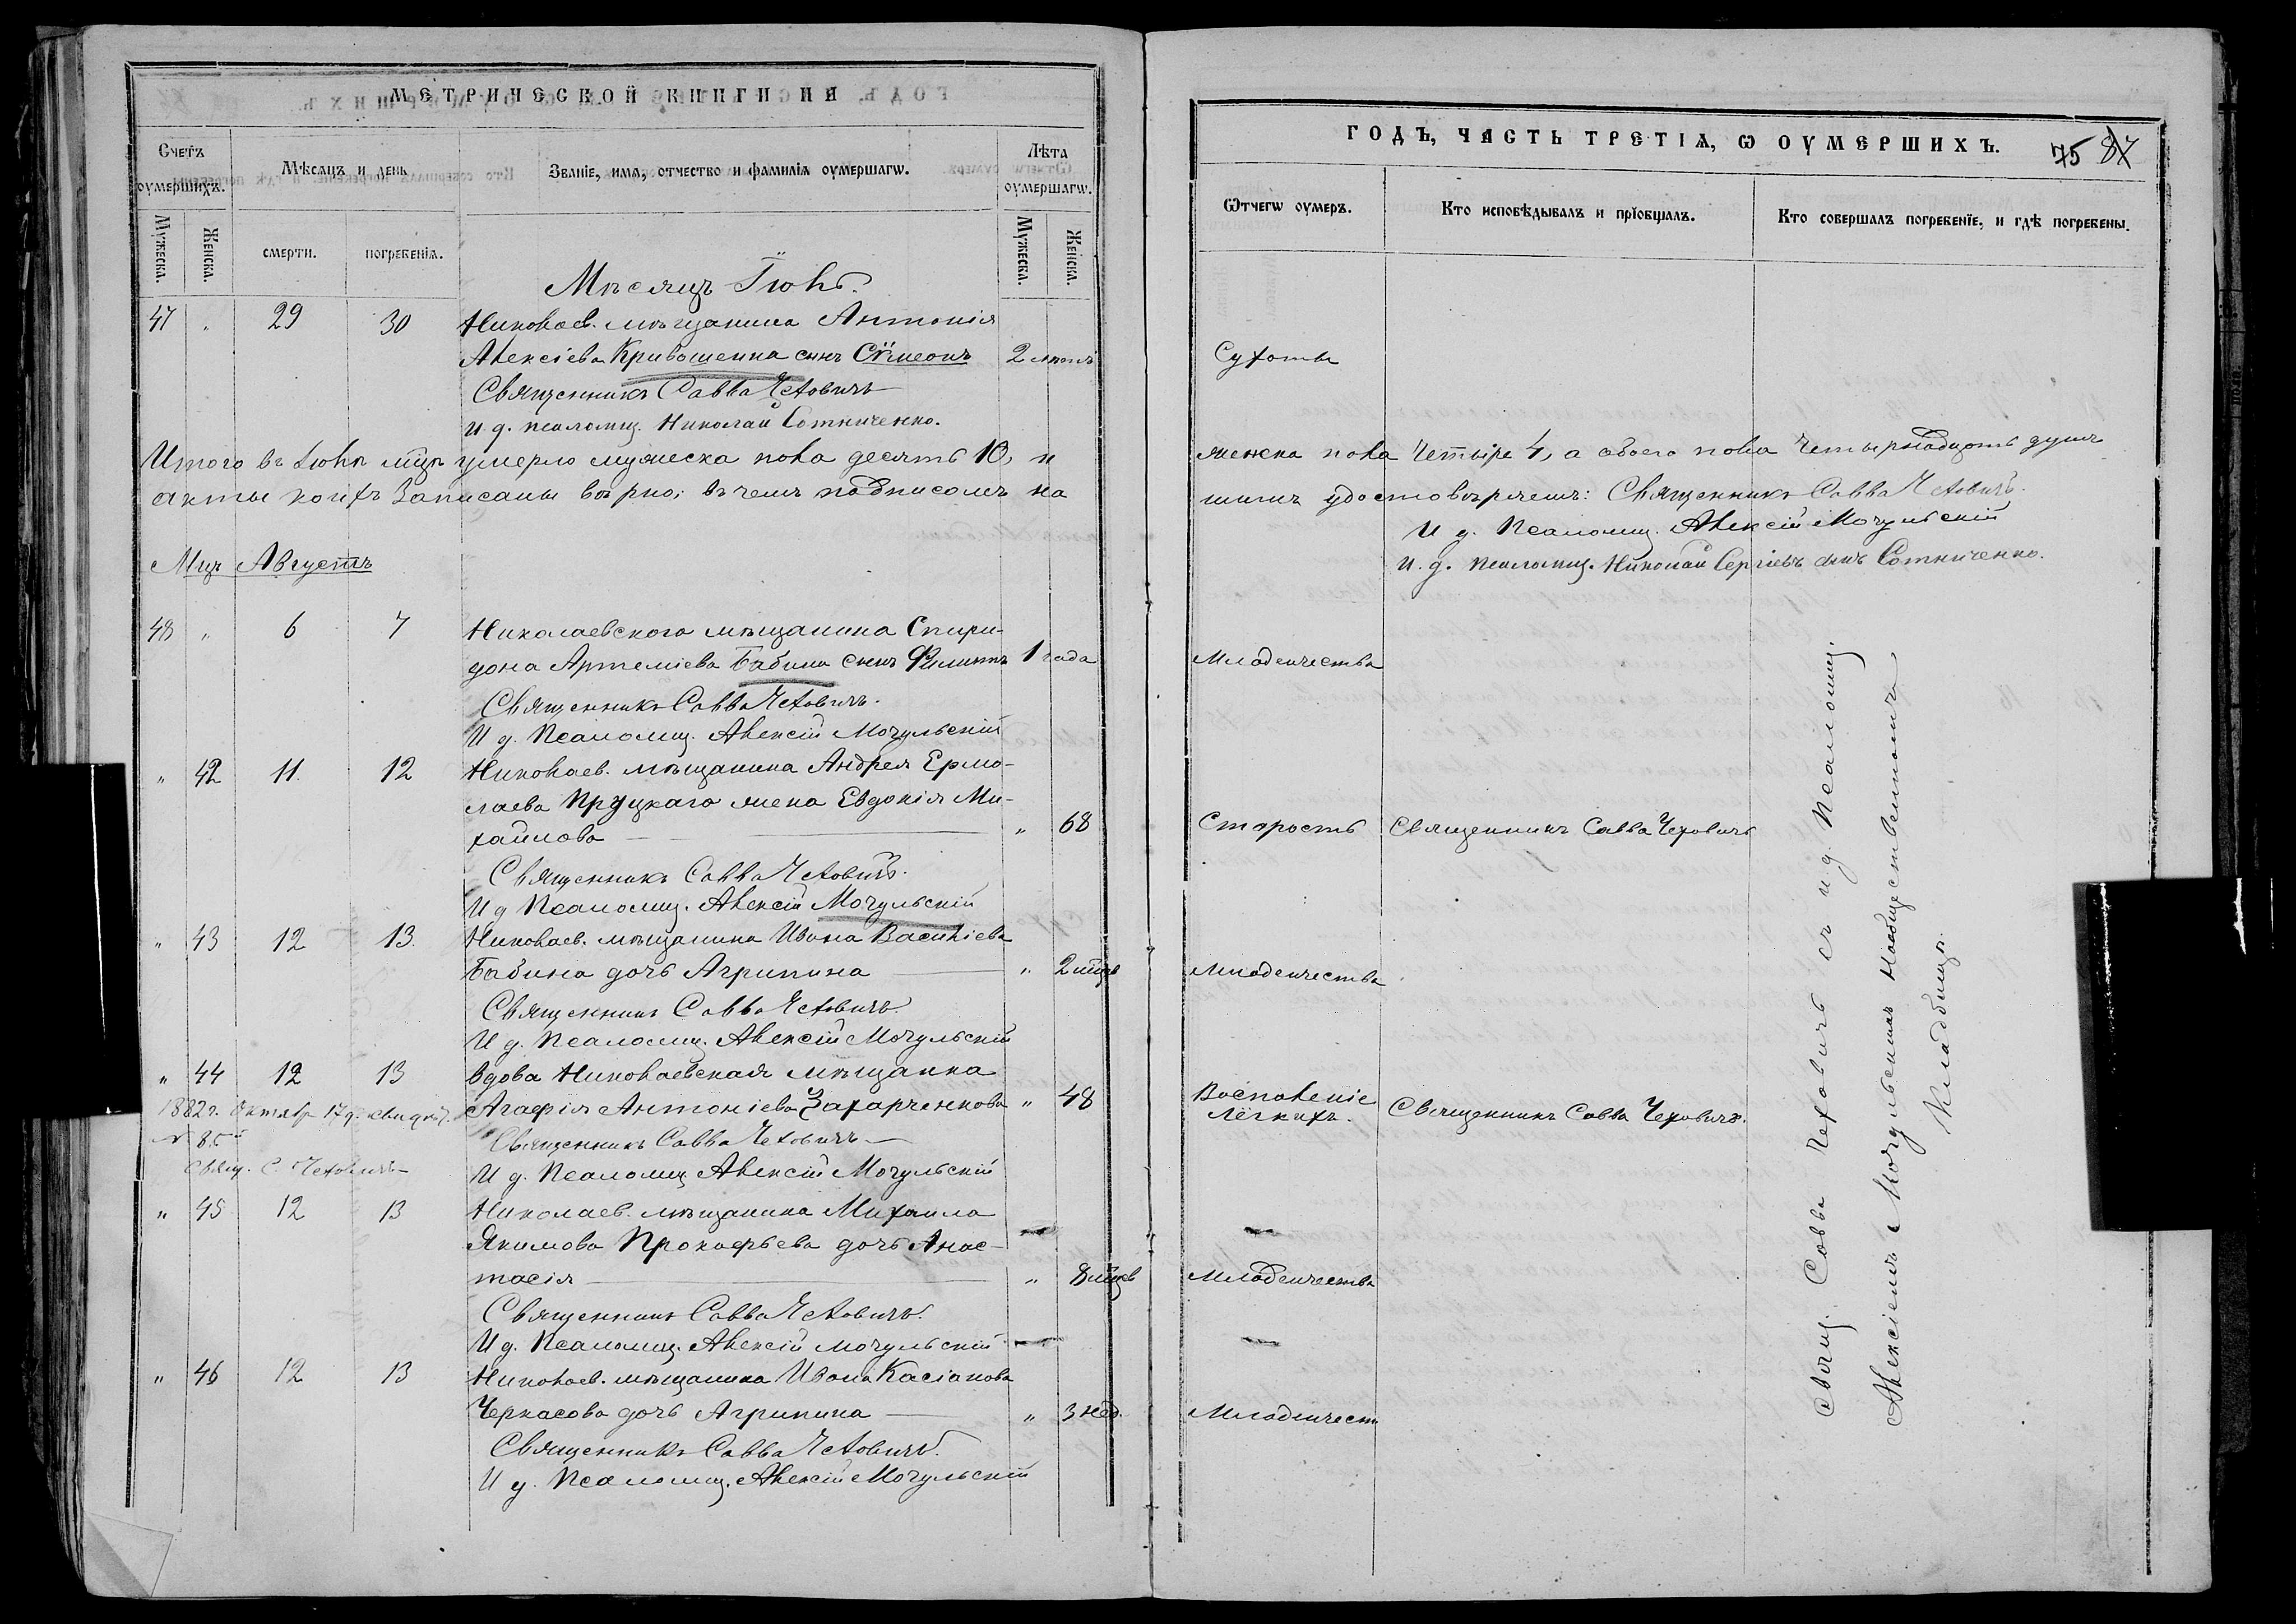 МЕТРИЧЕСКОЙ КНИГИ НА
Счетъ оумершихъ.
Мѣсяцъ и день
Званіе, имя, отчество и фамилія оумершагѡ.
Лѣта оумершагѡ.
Мужеска.
Женска.
смерти.
погребенія.
Мужеска.
Женска.
Мѣсяцъ Іюль.
47 " 29 30 Николаев. мѣщанина Антонія
Алексіева Кривошеина сынъ Сѷмеонъ 2 лѣтъ
Священникъ Савва Чеховичъ
И. д. псаломщ. Николай Сотниченко.
Итого въ Іюлѣ мцѣ умерло мужеска пола десять 10, и
акты коихъ записаны вѣрно; въ чемъ подписомъ на
Мцъ Августъ
48 " 6 7 Николаевского мѣщанина Спири-
дона Артеміева Бабина сынъ Филиппъ 1 года
Священникъ Савва Чеховичъ.
И д. Псаломщ. Алексій Мочульскій
" 42 11. 12 Николаев. мѣщанина Андрея Ермо-
лаева Пруцкаго жена Евдокія Ми-
хайлова " 68
Священникъ Савва Чеховичъ.
И д Псаломщ. Алексій Мочульскій
" 43 12 13. Николаев. мѣщанина Ивана Васильева
Бабина дочь Агрипина " 2 мцъ
Священникъ Савва Чеховичъ
И д. Псаломщ. Алексій Мочульскій
" 44 12 13 Вдова Николаевская мѣщанка
1882 г. Октябр 17 д.
Агафія Антоніева Захарченкова " 48
№ 85
Священникъ Савва Чеховичъ
Свящ. С. Чеховичъ
И д. Псаломщ. Алексій Мочульскій
" 45 12 13 Николаев. мѣщанина Михаила
Якимова Прокофьева дочь Анас-
тасія " 8 мцев
Священникъ Савва Чеховичъ.
И д. Псаломщ. Алексій Мочульскій
" 46 12 13 Николаев. мѣщанина Ивана Касіанова
Черкасова дочь Агрипина " 3 нед.
Священникъ Савва Чеховичъ.
И д. Псаломщ. Алексій Мочульскій
ГОДЪ, ЧАСТЬ ТРЕТІЯ, Ѡ ОУМЕРШИХЪ.
75 87
Ѿтчегѡ оумеръ.
Кто исповѣдывалъ и прїобщалъ.
Кто совершалъ погребенїе, и гдѣ погребены.
Сухоты
женска пола Четыре 4, а обоего пола Четырнадцать душъ
шимъ удостовѣряемъ: Священникъ Савва Чеховичъ.
И д. Псаломщ. Алексій Мочульскій
И. д. псаломщ. Николай Сергіевъ сынъ Сотниченко.
Младенчества
Старость Священникъ Савва Чеховичъ
Младенчества
Воспаленіе
Лёгкихъ. Священникъ Савва Чеховичъ.
Младенчества
Младенчест
Свящ. Савва Чеховичъ съ и д. Псаломщ.
Алексіемъ Мочульскимъ на общественномъ
Кладбищѣ.